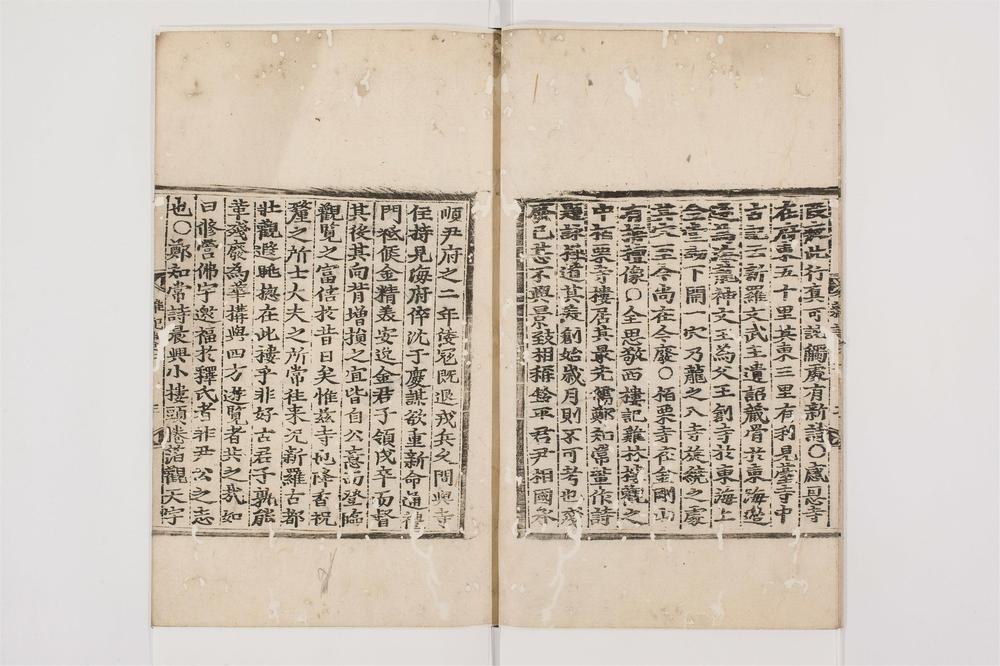 良衰此行真可記觸處有新詩〇感恩寺
在府東五十里其東三里有利見臺寺中
古記云新羅文武王遺詔藏骨於東海邊
為海龍神文王為父王創寺於東海上
金堂砌下開一穴乃龍之入寺旋繞之處
其穴至今尚在今廢〇栢栗寺在金剛山
有栴檀像〇全思敬西樓記雞林特觀之
中栢栗寺樓居其最先儒鄭知常嘗作詩
題詠道其名創始歲月則不可考也殘
廢已甚不與景致相稱鈴平君尹相國承
雜記
順尹府之二年倭冠既退戎兵之間與寺
住持見海府倅沈于慶謀欲重新命通禮
門祗候金精羨安逸金君子領戍卒而督
其後其向背增損之宜皆自公意而登臨
觀覽之富倍於昔日矣惟玆寺也降香祝
釐之所士大夫之所常往来况新羅古都
壯觀遐眺摠在此樓乎非好古君子孰能
革殘廢為華搆與四方遊覽者共之哉如
曰修營佛宇邀福於釋氏者非尹公之志
也〇鄭知常詩晨興小樓頭捲箔觀天宇
雜記